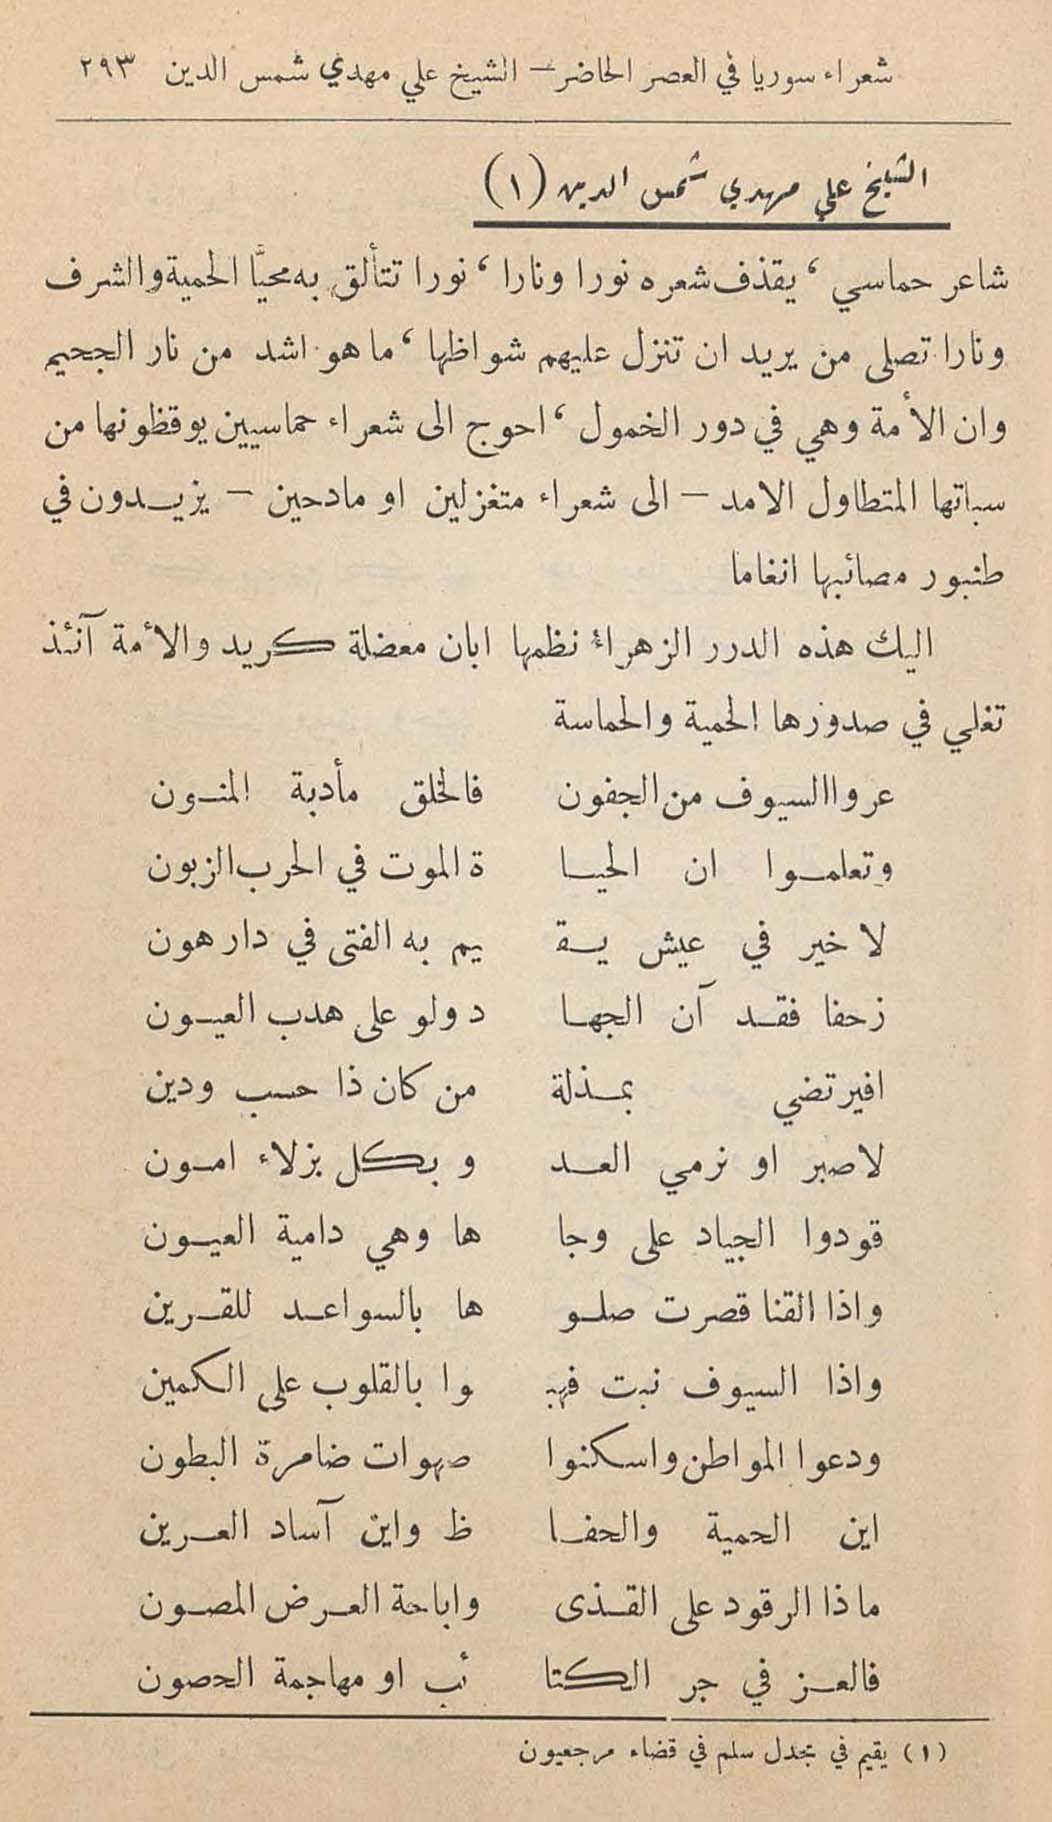 شعراء سوريا في العصر الحاضر — الشيخ علي مهدي شمس الدين ٢٩٣
الشيخ علي مهدي شمس الدين (١)
شاعر حماسي ، يقذف شعره نورا ونارا ، نورا تتألق به محيَّا الحمية والشرف
ونارا تصلى من يريد ان تنزل عليهم شواظها ، ما هو اشد من نار الجحيم
وان الأمة وهي في دور الخمول ، احوج الى شعراء حماسيين يوقظونها من
سباتها المتطاول الامد — الى شعراء متغزلين او مادحين — يزيدون في
طنبور مصائبها انغاما
اليك هذه الدرر الزهراء نظمها ابان معضلة كريد والأمة آنئذ
تغلي في صدورها الحمية والحماسة
عروا السيوف من الجفون فالخلق مأدبة المنون
وتعلموا ان الحيا ة الموت في الحرب الزبون
لا خير في عيش يقـ يم به الفتى في دار هون
زحفا فقد آن الجها د ولو على هدب العيون
افيرتضي بمذلة من كان ذا حسب ودين
لا صبر او نرمي العد و بكل بزلاء امون
قودوا الجياد على وجا ها وهي دامية العيون
واذا القنا قصرت صلو ها بالسواعد للقرين
واذا السيوف نبت فهبـ وا بالقلوب على الكمين
ودعوا المواطن واسكنوا صهوات ضامرة البطون
اين الحمية والحفا ظ واين آساد العرين
ماذا الرقود على القذى واباحة العرض المصون
فالعز في جر الكتا ئب او مهاجمة الحصون
(١) يقيم في مجدل سلم في قضاء مرجعيون